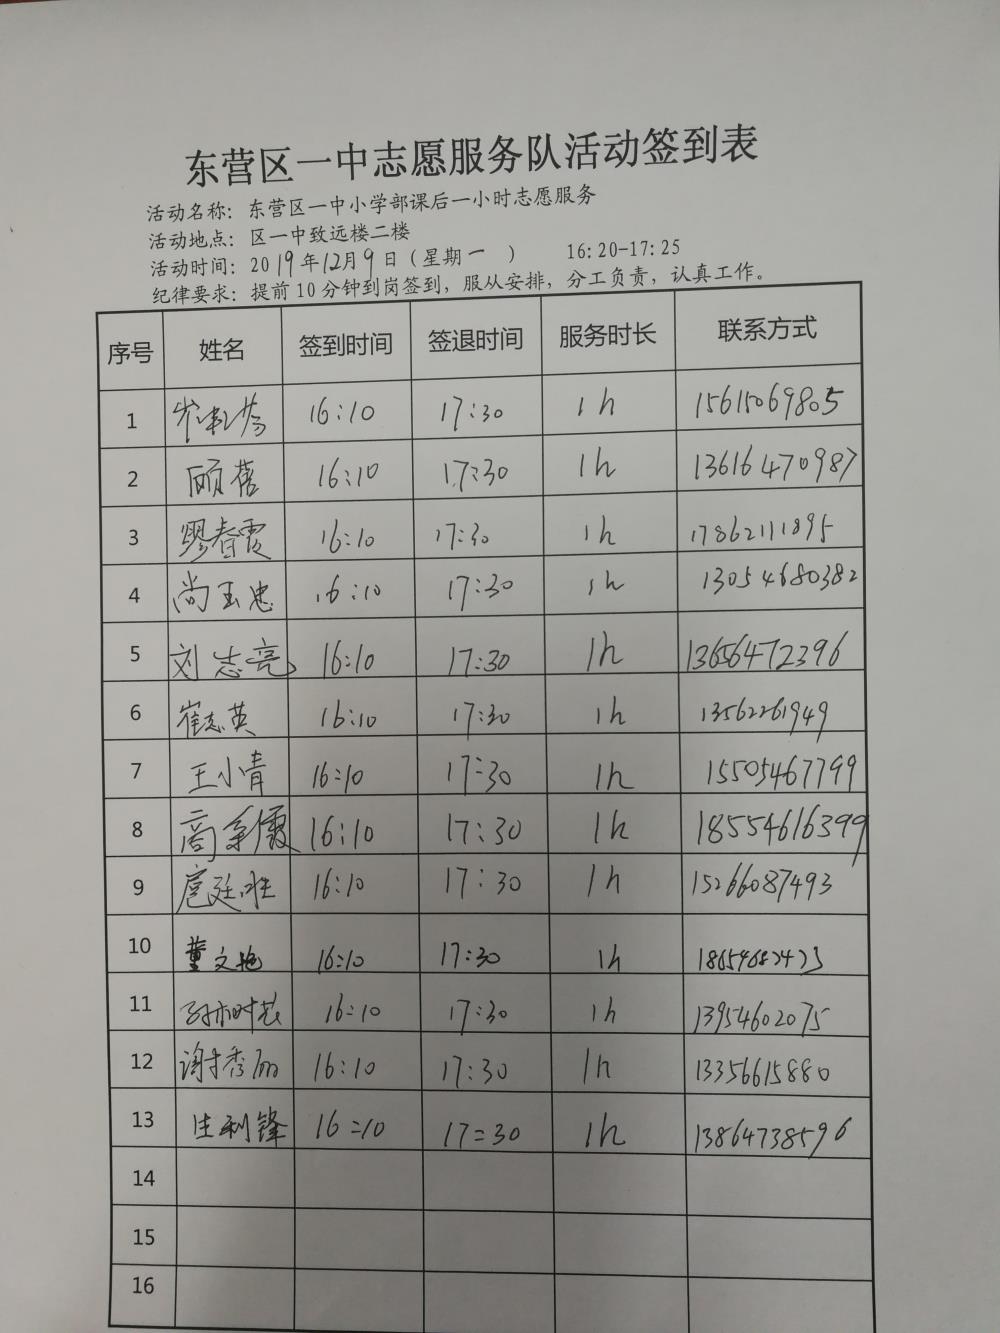 东营区一中志愿服务队活动签到表
活动名称：东营区一中小学部课后一小时志愿服务
活动地点：区一中致远楼二楼
活动时间：2019年12月9日（星期一 ） 16:20-17:25
纪律要求：提前10分钟到岗签到，服从安排，分工负责，认真工作。
序号 姓名 签到时间 签退时间 服务时长 联系方式
1 16:10 17:30 1h 15615069805
2 顾蓓 16:10 17:30 1h 13616470987
3 缪春霞 16:10 17:30 1h 17862111895
4 尚玉忠 16:10 17:30 1h 13054680382
5 刘志亮 16:10 17:30 1h 13656472396
6 崔志英 16:10 17:30 1h 13562261949
7 王小青 16:10 17:30 1h 15505467799
8 16:10 17:30 1h 18554616399
9 16:10 17:30 1h 15266087493
10 董文艳 16:10 17:30 1h
11 16:10 17:30 1h 13954602075
12 谢秀丽 16:10 17:30 1h 13356615880
13 生利锋 16:10 17:30 1h 13864738596
14
15
16